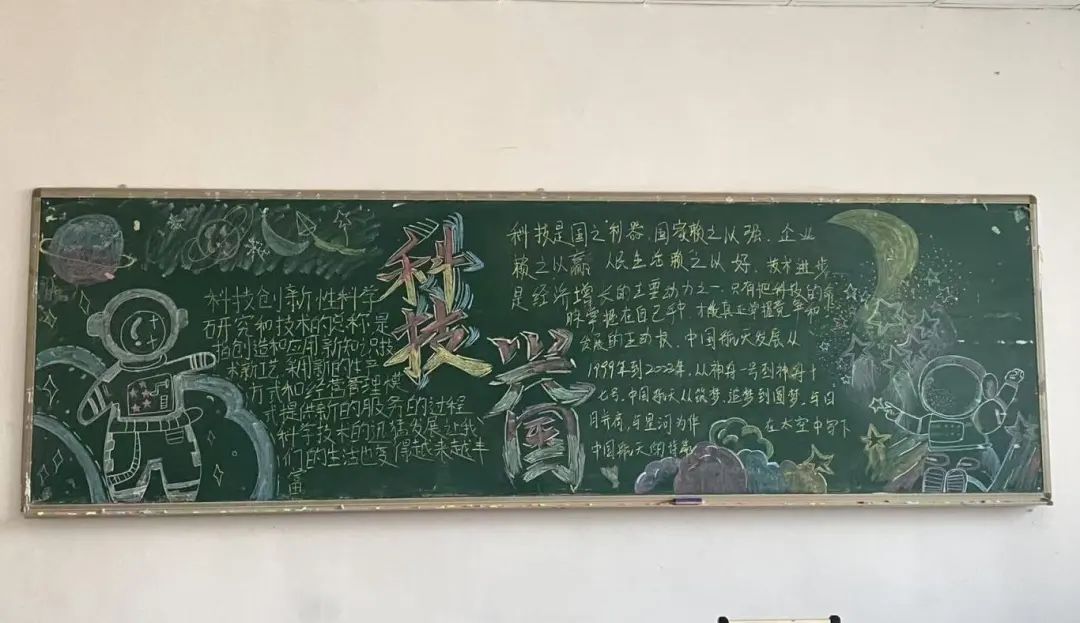 科技创新性科学
研究和技术的总称是
指创造和应用新知识技
术新工艺采用新的生产
方式和经营管理模
式提供新的服务的过程
科学技术的迅猛发展让我
们的生活也变得越来越丰
富
科技
兴国
科技是国之利器,国家赖之以强,企业
赖之以赢,人民生活赖之以好,技术进步
是经济增长的主要动力之一,只有把科技的命
脉掌握在自己手中,才能真正掌握竞争和
发展的主动权,中国航天发展从
1999年到2022年,从神舟一号到神舟十
七号,中国航天从筑梦,追梦到圆梦,与日
月并肩,与星河为伴 在太空中写下
中国航天的